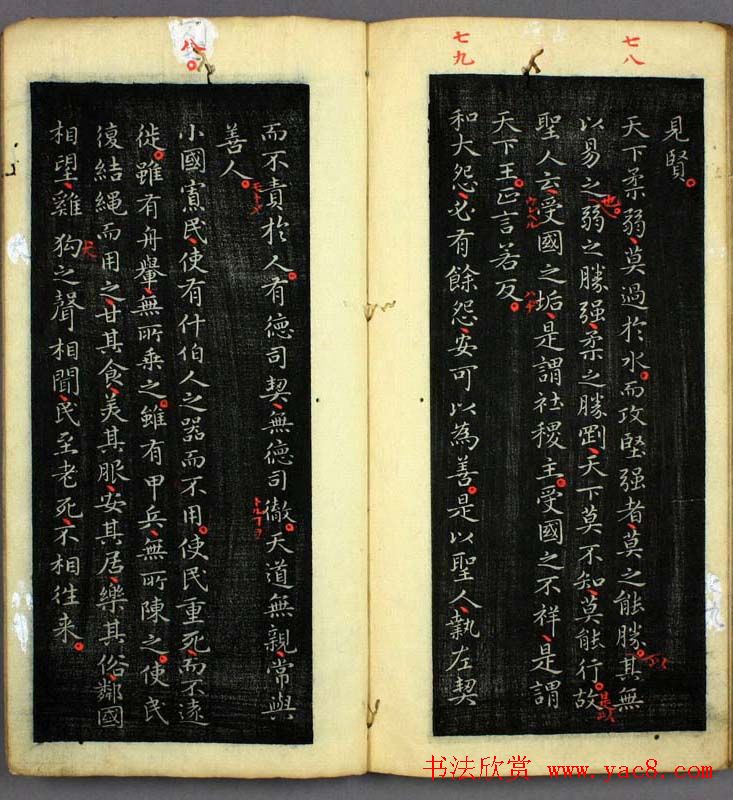 七八
見賢。
天下柔弱莫過於水。而攻堅强者莫之能勝。其無
以易之弱之勝强柔之勝剛天下莫不知莫能行。故
也。
是以
聖人云受國之垢是謂社稷主。受國之不祥是謂
ハヂ
天下王。正言若反。
七九
和大怨必有餘怨安可以為善。是以聖人執左契
八。
而不責於人。有德司契無德司徹。天道無親常與
善人。
モトメ
小國寡民使有什伯人之器而不用。使民重死而不遠
徙。雖有舟轝無所乘之。雖有甲兵無所陳之。使民
復結繩而用之甘其食美其服安其居樂其俗鄰國
相望雞狗之聲相聞民至老死不相往来。
犬
书法欣赏 www.yac8.com